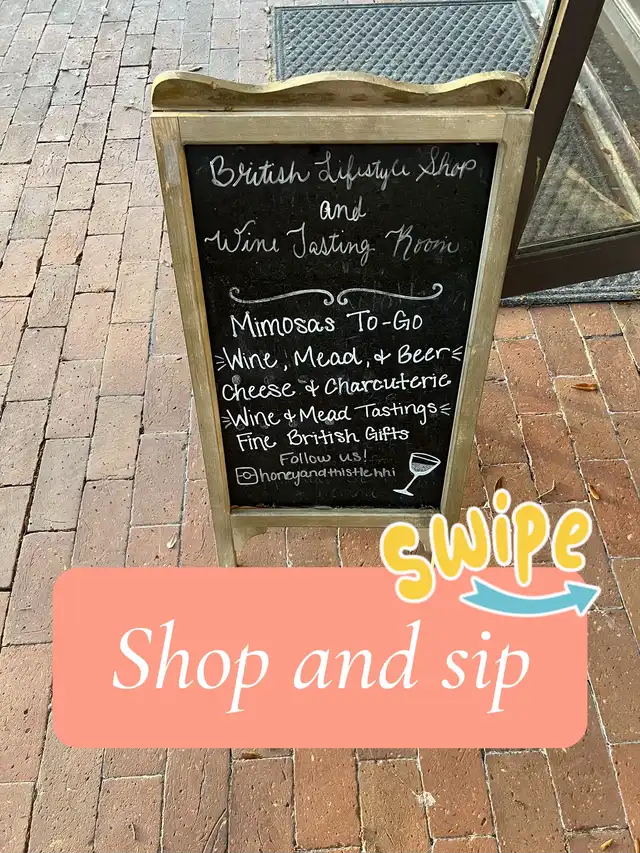 British Lifestyle Shop
and
Wine Tasting Room
Mimosas To-Go
Wine, Mead, & Beer
Cheese & Charcuterie
Wine & Mead Tastings
Fine British Gifts
Follow us!
honeyandthistlehhi
swipe
Shop and sip